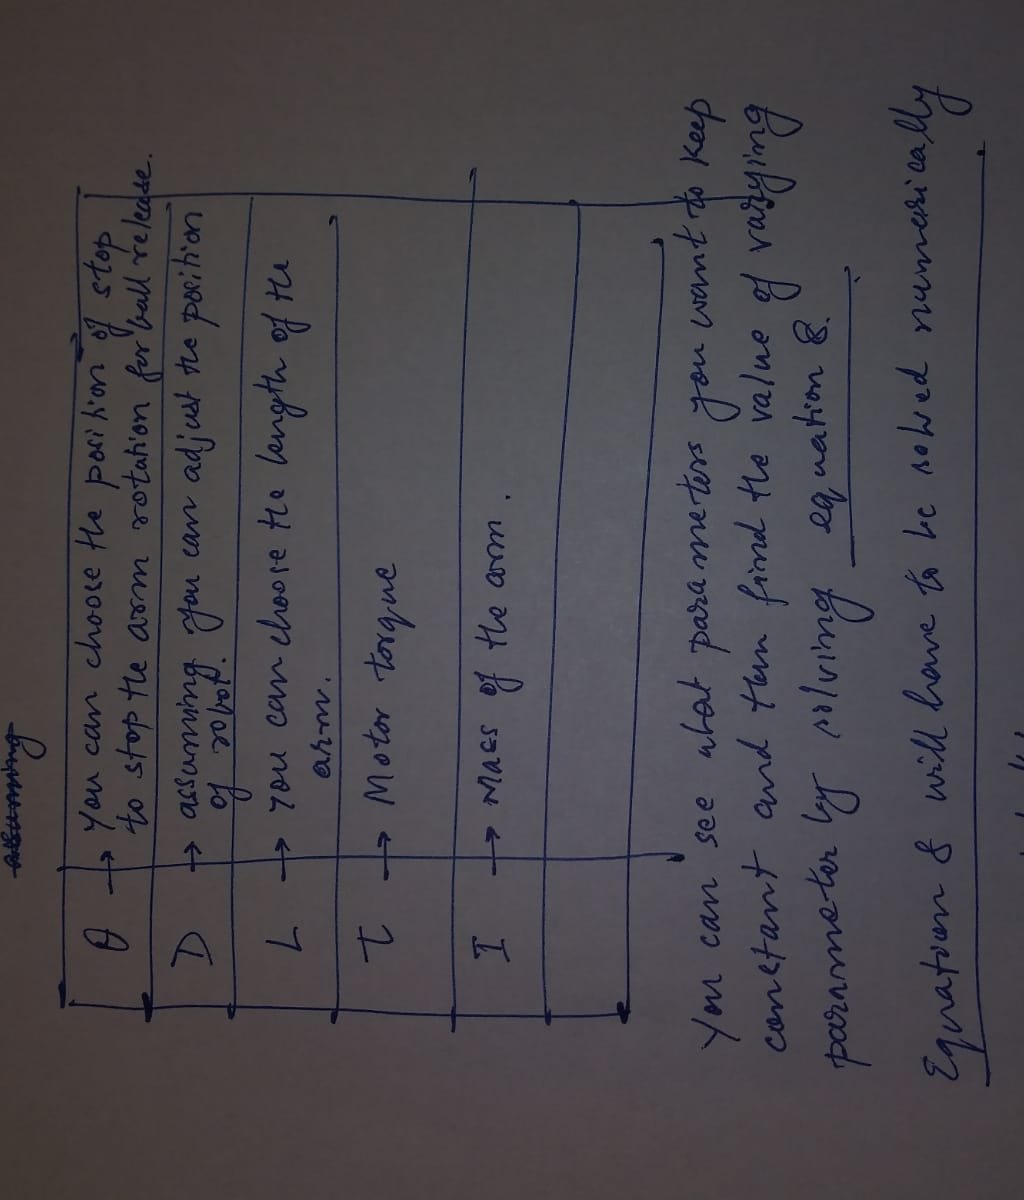 assuming
θ → You can choose the position of stop
to stop the arm rotation for ball release.
D → assuming you can adjust the position
of robot.
L → You can choose the length of the
arm.
τ → Motor torque
I → Mass of the arm.
You can see what parameters you want to keep
constant and then find the value of varying
parameter by solving equation 8.
Equation 8 will have to be solved numerically